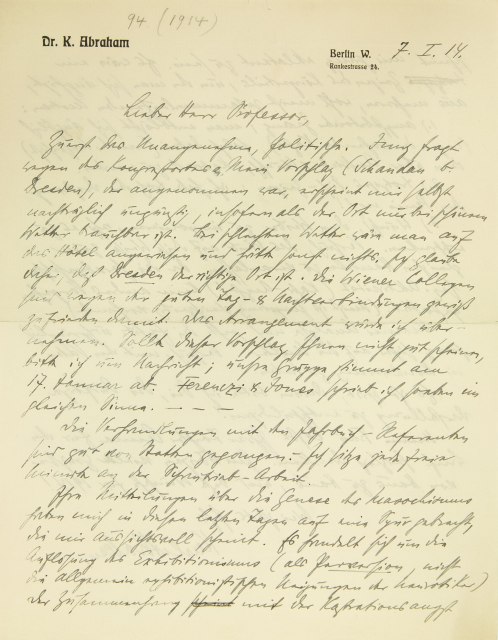 94 (1914)
Dr. K. Abraham
Berlin W. 7. I. 14.
Rankestrasse 24.
Lieber Herr Professor,
Zuerst das Unangenehme, Politische. Jung fragt
wegen des Kongressortes an. Mein Vorschlag (Schandau b.
Dresden), der angenommen war, erscheint mir selbst
nachträglich ungünstig, insofern als der Ort nur bei schönem
Wetter brauchbar ist. Bei schlechtem Wetter wäre man auf
das Hotel angewiesen und hätte sonst nichts. Ich glaube
daher, daß Dresden der richtige Ort ist. Die Wiener Collegen
sind wegen der guten Tag- & Nachtverbindungen gewiß
zufrieden damit. Das Arrangement würde ich über-
nehmen. Sollte dieser Vorschlag Ihnen nicht gut scheinen,
bitte ich um Nachricht; unsre Gruppe stimmt am
17. Januar ab. Ferenczi & Jones schrieb ich soeben im
gleichen Sinne. — — —
Die Verhandlungen mit den Jahrbuch-Referenten
sind gut von Statten gegangen. - Ich sitze jede freie
Minute an der Schautrieb-Arbeit.
Ihre Mitteilungen über die Genese des Masochismus
haben mich in diesen letzten Tagen auf eine Spur gebracht,
die mir aussichtsvoll scheint. Es handelt sich um die
Auflösung des Exhibitionismus (als Perversion, nicht
die allgemein exhibitionistischen Neigungen der Neurotiker)
Der Zusammenhang scheint mit der Kastrationsangst